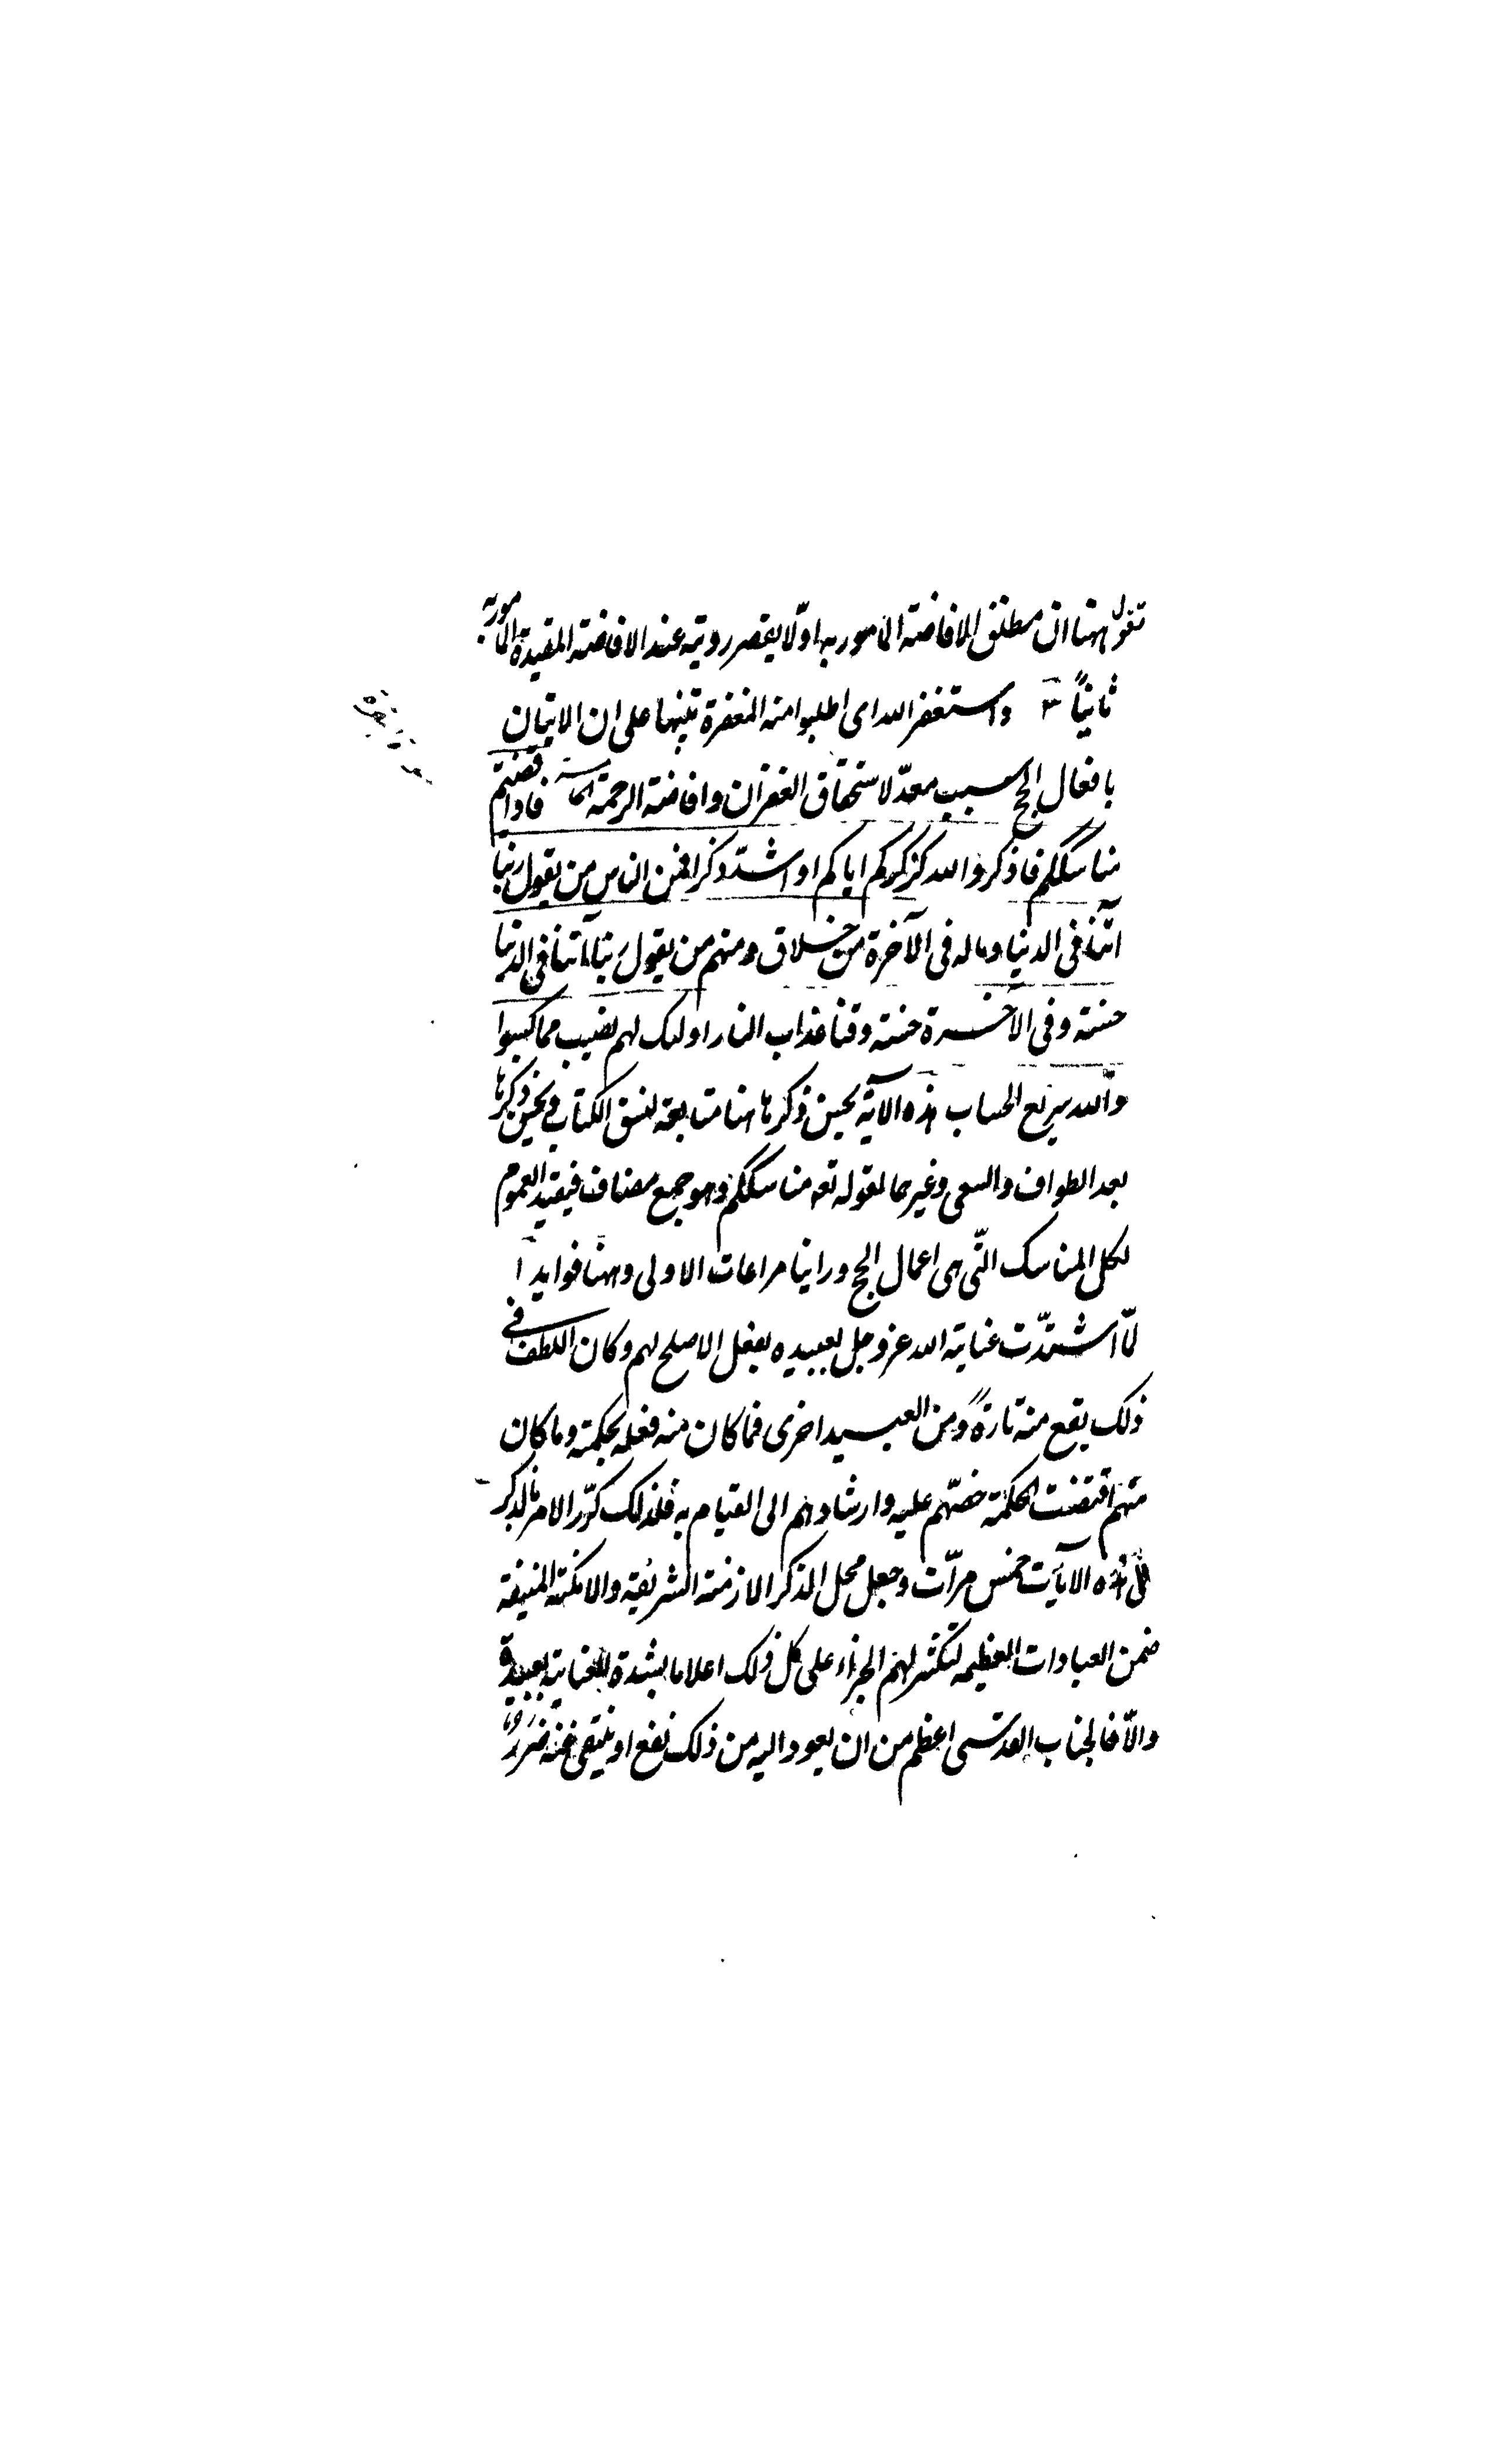 نقول ههنا ان مطلق الافاضة المامور به اولا يقصر رويته عند الافاضة المقيدة المامور به
ثانياً ٣ واستغفر الله اى اطلبوا منه المغفرة تنبيها على ان الاتيان
بافعال الحج سبب معدّ لاستحقاق الغفران وافاضة الرحمة فاذا قضيتم
مناسككم فاذكروا الله كذكركم اباكم او اشدّ ذكرا فمن الناس من يقول ربنا
اتنا فى الدنيا وماله فى الآخرة من خلاق ومنهم من يقول ربنا آتنا فى الدنيا
حسنة وفى الآخرة حسنة وقنا عذاب النار اولئك لهم نصيب مما كسبوا
والله سريع الحساب هذه الآية يحسن ذكرها هنا متابعة لنسق الكتاب ويحسن ذكرها
بعد الطواف والسعى وغيرهما لقوله تعه مناسككم وهو جمع مضاف فيفيد العموم
لكل المناسك الّتى هى اعمال الحج وراينا مراعات الاولى وههنا فوايد ا
لمّا اشتدّت عناية الله عز وجل بعبيده بفعل الاصلح لهم وكان اللطف فى
ذلك يقع منه تارةً ومن العبيد اخرى فما كان منه فعله بحكمته وما كان
منهم اقتضت الحكمة حضّهم عليه وارشادهم الى القيام به فلذلك كرّر الامر بالذكر
فى هذه الآيات خمس مرّات وجعل محل الذكر الازمنة الشريفة والامكنة المنيفة
ضمن العبادات العظيمه لتكثر لهم الجزاء على كل ذلك اعلاما بشدة العناية بعبيده
والّا فالجناب القدسى اعظم من ان يعود اليه من ذلك نفع او ينتقى عنه ضرر